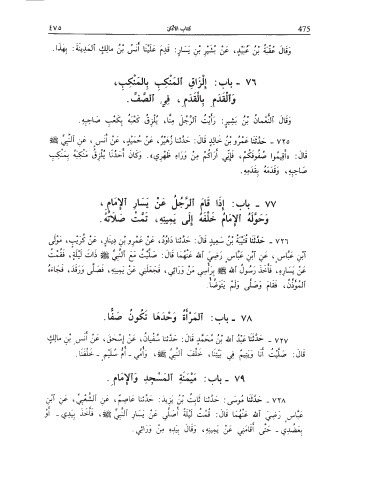 ٤٧٥ كتاب الأذان 475
وَقَالَ عُقْبَةُ بْنُ عُبَيْدٍ، عَنْ بُشَيْرِ بْنِ يَسَارٍ: قَدِمَ عَلَيْنَا أَنَسُ بْنُ مَالِكٍ المَدِينَةَ: بِهَذَا.
٧٦ - باب: إِلْزَاقِ المَنْكِبِ بِالمَنْكِبِ،
وَالْقَدَمِ بِالْقَدَمِ، فِي الصَّفِّ.
وَقَالَ النُّعْمَانُ بْنُ بَشِيرٍ: رَأَيْتُ الرَّجُلَ مِنَّا، يُلْزِقُ كَعْبَهُ بِكَعْبِ صَاحِبِهِ.
٧٢٥ - حَدَّثَنَا عَمْرُو بْنُ خَالِدٍ قَالَ: حَدَّثَنَا زُهَيْرٌ، عَنْ حُمَيْدٍ، عَنْ أَنَسٍ، عَنِ النَّبِيِّ ﷺ
قَالَ: «أَقِيمُوا صُفُوفَكُمْ، فَإِنِّي أَرَاكُمْ مِنْ وَرَاءِ ظَهْرِي». وَكَانَ أَحَدُنَا يُلْزِقُ مَنْكِبَهُ بِمَنْكِبِ
صَاحِبِهِ، وَقَدَمَهُ بِقَدَمِهِ.
٧٧ - باب: إِذَا قَامَ الرَّجُلُ عَنْ يَسَارِ الْإِمَامِ،
وَحَوَّلَهُ الْإِمَامُ خَلْفَهُ إِلَى يَمِينِهِ، تَمَّتْ صَلَاتُهُ.
٧٢٦ - حَدَّثَنَا قُتَيْبَةُ بْنُ سَعِيدٍ قَالَ: حَدَّثَنَا دَاوُدُ، عَنْ عَمْرِو بْنِ دِينَارٍ، عَنْ كُرَيْبٍ، مَوْلَى
ابْنِ عَبَّاسٍ، عَنِ ابْنِ عَبَّاسٍ رَضِيَ اللهُ عَنْهُمَا قَالَ: صَلَّيْتُ مَعَ النَّبِيِّ ﷺ ذَاتَ لَيْلَةٍ، فَقُمْتُ
عَنْ يَسَارِهِ، فَأَخَذَ رَسُولُ اللهِ ﷺ بِرَأْسِي مِنْ وَرَائِي، فَجَعَلَنِي عَنْ يَمِينِهِ، فَصَلَّى وَرَقَدَ، فَجَاءَهُ
المُؤَذِّنُ، فَقَامَ وَصَلَّى وَلَمْ يَتَوَضَّأْ.
٧٨ - باب: المَرْأَةُ وَحْدَهَا تَكُونُ صَفًّا.
٧٢٧ - حَدَّثَنَا عَبْدُ اللهِ بْنُ مُحَمَّدٍ قَالَ: حَدَّثَنَا سُفْيَانُ، عَنْ إِسْحَقَ، عَنْ أَنَسِ بْنِ مَالِكٍ
قَالَ: صَلَّيْتُ أَنَا وَيَتِيمٌ فِي بَيْتِنَا، خَلْفَ النَّبِيِّ ﷺ، وَأُمِّي - أُمُّ سُلَيْمٍ - خَلْفَنَا.
٧٩ - باب: مَيْمَنَةِ المَسْجِدِ وَالْإِمَامِ.
٧٢٨ - حَدَّثَنَا مُوسَى: حَدَّثَنَا ثَابِتُ بْنُ يَزِيدَ: حَدَّثَنَا عَاصِمٌ، عَنِ الشَّعْبِيِّ، عَنِ ابْنِ
عَبَّاسٍ رَضِيَ اللهُ عَنْهُمَا قَالَ: قُمْتُ لَيْلَةً أُصَلِّي عَنْ يَسَارِ النَّبِيِّ ﷺ، فَأَخَذَ بِيَدِي - أَوْ
بِعَضُدِي - حَتَّى أَقَامَنِي عَنْ يَمِينِهِ، وَقَالَ بِيَدِهِ مِنْ وَرَائِي.